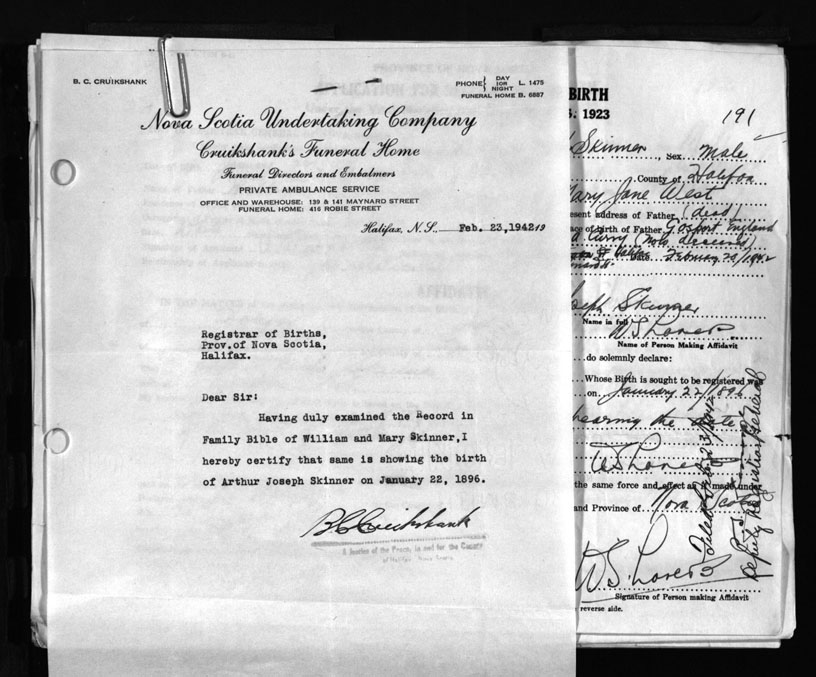 B. C. CRUIKSHANK
PHONE { DAY OR NIGHT } L. 1475
FUNERAL HOME B. 6887
Nova Scotia Undertaking Company
Cruikshank's Funeral Home
Funeral Directors and Embalmers
PRIVATE AMBULANCE SERVICE
OFFICE AND WAREHOUSE: 139 & 141 MAYNARD STREET
FUNERAL HOME: 416 ROBIE STREET
Halifax, N. S., Feb. 23, 1942 19
Registrar of Births,
Prov. of Nova Scotia,
Halifax.
Dear Sir:
Having duly examined the Record in
Family Bible of William and Mary Skinner, I
hereby certify that same is showing the birth
of Arthur Joseph Skinner on January 22, 1896.
B C Cruikshank
A Justice of the Peace, in and for the County
of Halifax, Nova Scotia
BIRTH
1923
191
Skinner, Sex Male
County of Halifax
Mary Jane West
present address of Father (dead)
place of birth of Father Gosport England
Curry (now deceased)
Halifax Date February 23/1942
Joseph Skinner
Name in full
Name of Person Making Affidavit
do solemnly declare:
Whose Birth is sought to be registered was
on January 22/1896
bearing the date
the same force and effect as if made under
and Province of Nova Scotia
Signature of Person making Affidavit
reverse side.
Filed Feb. 23/1942
Deputy Registrar General